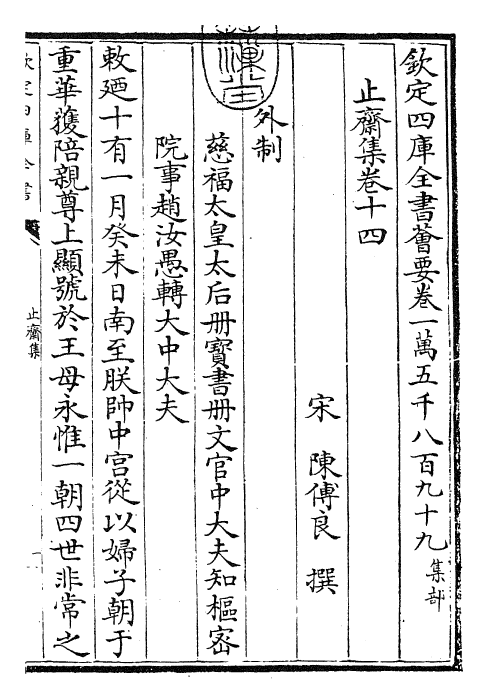 欽定四庫全書薈要卷一萬五千八百九十九集部
止齋集卷十四
宋　陳傅良　撰
外制
慈福太皇太后冊寳書册文官中大夫知樞宻
院事趙汝愚轉大中大夫
敕廼十有一月癸未日南至朕帥中宫從以婦子朝于
重華獲陪親尊上顯號於王母永惟一朝四世非常之
欽定四庫全書
止齋集
一